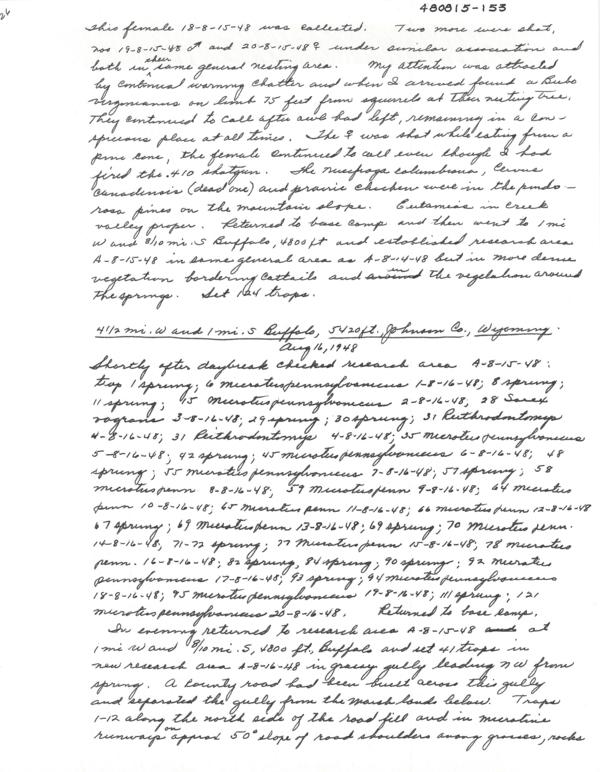 480815-153
This female 18-8-15-48 was collected. Two more were shot,
nos 19-8-15-48 ♂ and 20-8-15-48 ♀ under similar association and
both in their same general nesting area. My attention was attracted
by continual warning chatter and when I arrived found a Bubo
virginianus on limb 75 feet from squirrels at their nesting tree.
They continued to call after owl had left, remaining in a con-
spicuous place at all times. The ♀ was shot while eating from a
pine cone, the female continued to call even though I had
fired the .410 shotgun. The Nucifraga columbiana, Cervus
canadensis (dead one) and prairie chicken were in the ponde-
rosa pines on the mountain slope. Eutamias in creek
valley proper. Returned to base camp and then went to 1 mi
W and 8/10 mi. S Buffalo, 4800 ft and established research area
A-8-15-48 in same general area as A-8-14-48 but in more dense
vegetation bordering cattails and in the vegetation around
the springs. Set 124 traps.
4 1/2 mi. W and 1 mi. S Buffalo, 5420 ft. Johnson Co., Wyoming.
Aug 16, 1948
Shortly after daybreak checked research area A-8-15-48:
trap 1 sprung; 6 Microtus pennsylvanicus 1-8-16-48; 8 sprung;
11 sprung; 15 Microtus pennsylvanicus 2-8-16-48, 28 Sorex
vagrans 3-8-16-48; 29 sprung; 30 sprung; 31 Reithrodontomys
4-8-16-48; 31 Reithrodontomys 4-8-16-48; 35 Microtus pennsylvanicus
5-8-16-48; 42 sprung; 45 Microtus pennsylvanicus 6-8-16-48; 48
sprung; 55 Microtus pennsylvanicus 7-8-16-48; 57 sprung; 58
Microtus penn 8-8-16-48; 59 Microtus penn 9-8-16-48; 64 Microtus
penn 10-8-16-48; 65 Microtus penn 11-8-16-48; 66 Microtus penn 12-8-16-48
67 sprung; 69 Microtus penn 13-8-16-48; 69 sprung; 70 Microtus penn.
14-8-16-48; 71-72 sprung; 77 Microtus penn 15-8-16-48; 78 Microtus
penn. 16-8-16-48; 82 sprung, 84 sprung; 90 sprung; 92 Microtus
pennsylvanicus 17-8-16-48; 93 sprung; 94 Microtus pennsylvanicus
18-8-16-48; 95 Microtus pennsylvanicus 19-8-16-48; 111 sprung; 121
Microtus pennsylvanicus 20-8-16-48. Returned to base camp.
In evening returned to research area A-8-15-48 at
1 mi W and 8/10 mi. S, 4800 ft, Buffalo and set 41 traps in
new research area A-8-16-48 in grassy gully leading NW from
spring. A county road had been built across this gully
and separated the gully from the marsh lands below. Traps
1-12 along the north side of the road fill and in microtine
runways on approx 50° slope of road shoulders among grasses, rocks